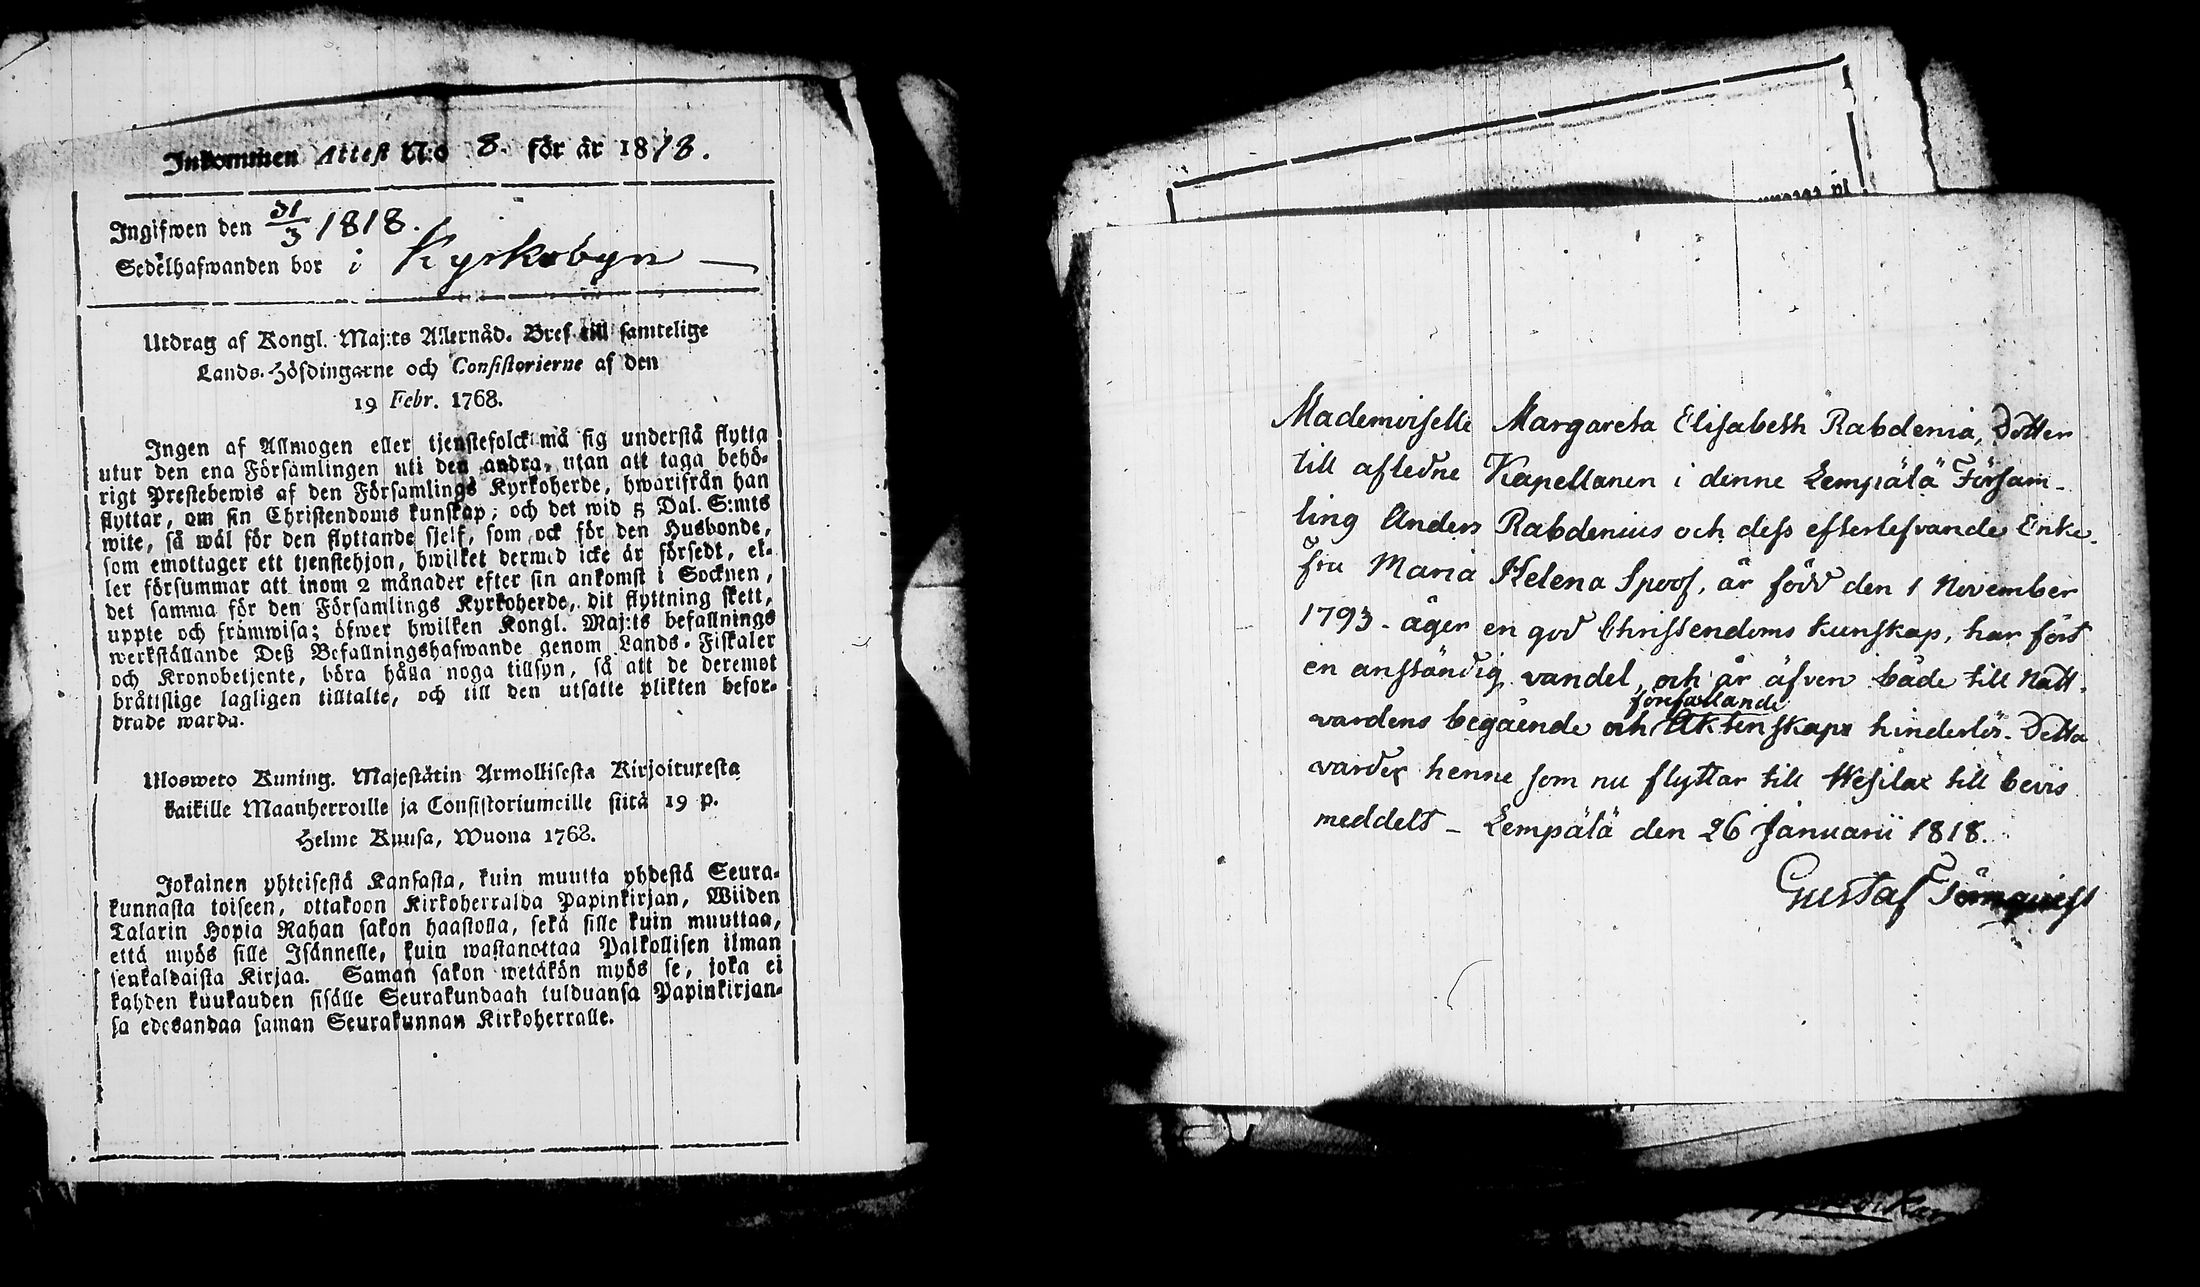 Inkommen Attest N:o 8. för år 1818.
Ingifwen den 31/3 1818.
Sedelhafwanden bor i Kyrkobyn —
Utdrag af Kongl. Maj:ts Allernåd. Bref till samtelige
Lands-Höfdingarne och Consistorierne af den
19 Febr. 1768.
Ingen af Allmogen eller tjenstefolck må sig understå flytta
utur den ena Församlingen uti den andra, utan att taga behö-
rigt Prestebewis af den Församlings Kyrkoherde, hwarifrån han
flyttar, om sin Christendoms kunskap; och det wid 5 Dal. S:mts
wite, så wäl för den flyttande sjelf, som ock för den Husbonde,
som emottager ett tjenstehjon, hwilket dermed icke är försedt, el-
ler försummar att inom 2 månader efter sin ankomst i Socknen,
det samma för den Församlings Kyrkoherde, dit flyttning skett,
uppte och framwisa; öfwer hwilken Kongl. Maj:ts befallnings
werkställande Deß Befallningshafwande genom Lands-Fiskaler
och Kronobetjente, böra hålla noga tillsyn, så att de deremot
bråttslige lagligen tilltalte, och till den utsatte plikten befor-
drade warda.
Ulosweto Kuning. Majestätin Armollisesta Kirjoituxesta
kaikille Maanherroille ja Consistoriumeille siitä 19 p.
Helme Kuusa, Wuona 1768.
Jokainen yhteisestä Kansasta, kuin muutta yhdestä Seura-
kunnasta toiseen, ottakoon Kirkoherralda Papinkirjan, Wiiden
Talarin Hopia Rahan sakon haastolla, sekä sille kuin muuttaa,
että myös sille Isännelle, kuin wastanottaa Palkollisen ilman
senkaldaista Kirjaa. Saman sakon wetäkön myös se, joka ei
kahden kuukauden sisälle Seurakundaan tulduansa Papinkirjan-
sa edesandaa saman Seurakunnan Kirkoherralle.
Mademoiselle Margareta Elisabeth Rabdenia, Dotter
till afledne Kapellanen i denne Lempälä Församl-
ling Anders Rabdenius och dess efterlefvande Enke.
fru Maria Helena Spoof, är född den 1 November
1793 - äger en god Christendoms kunskap, har fört
en anständig vandel, och är äfven både till Natt-
förefallande
vardens begående och Äktenskaps hinderlös. Detta
varder henne som nu flyttar till Wesilax till bevis
meddelt - Lempälä den 26 Januarii 1818.
Gustaf Törnqvist